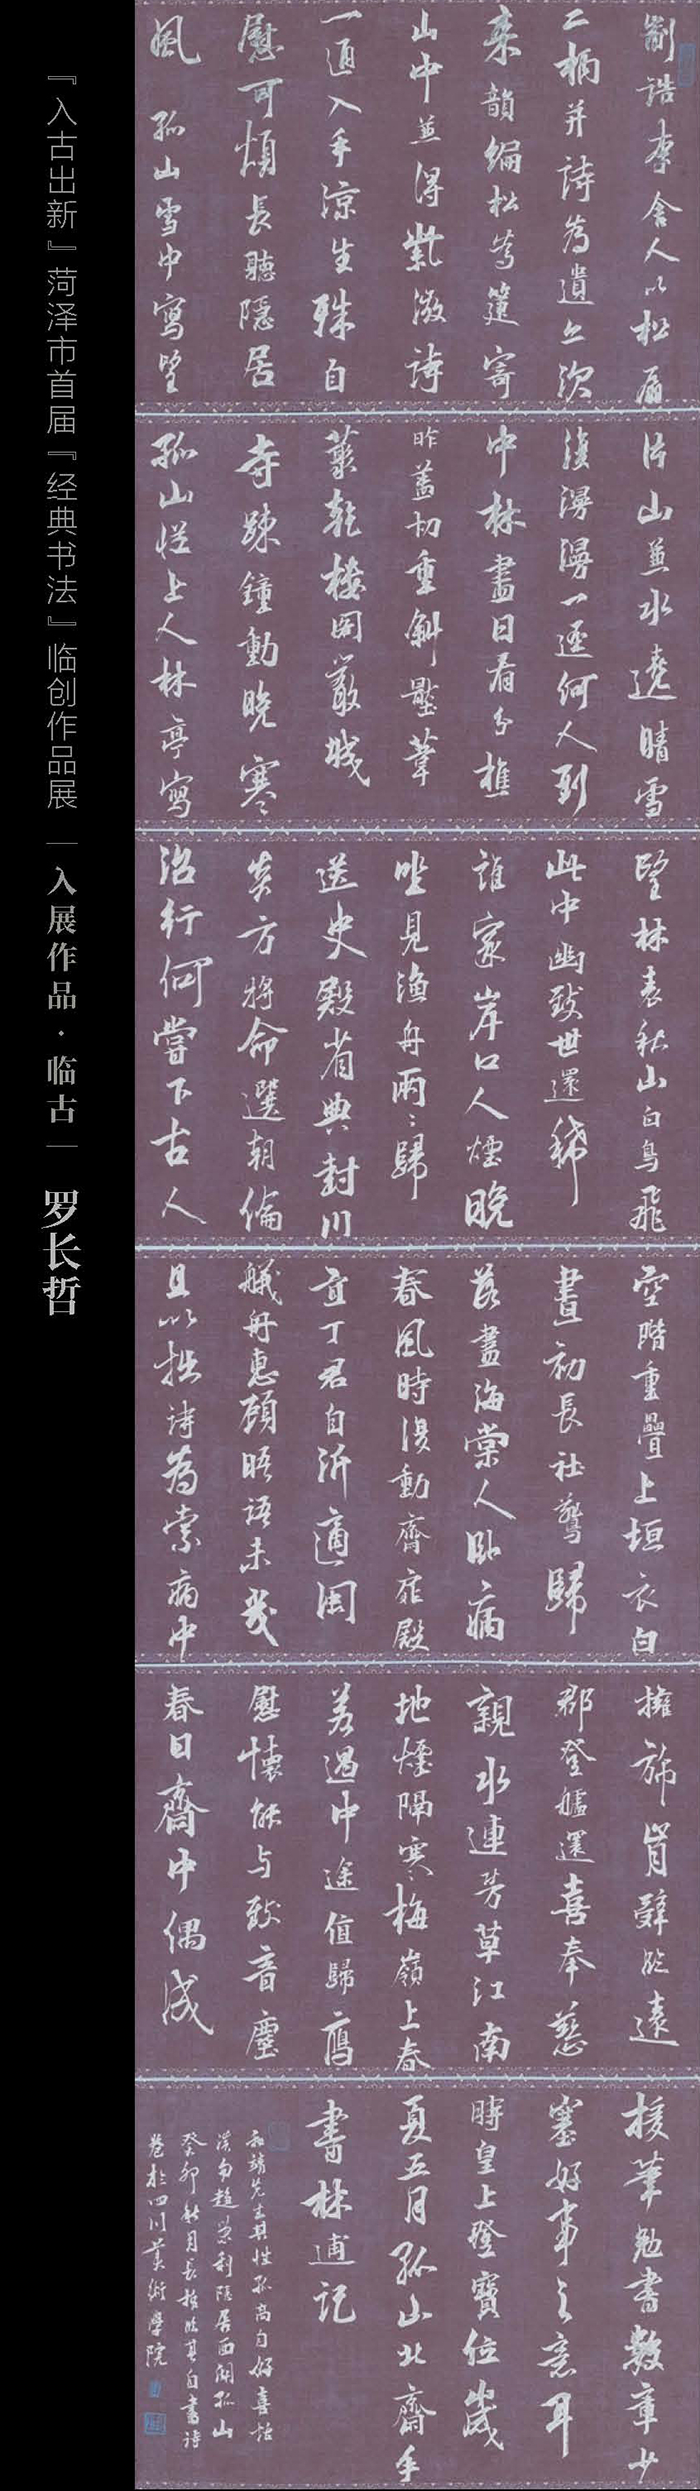 『入古出新』菏泽市首届『经典书法』临创作品展
入展作品·临古
罗长哲
制誥李舍人以松扇
二柄并詩為遺亦次
來韻編松為箑寄
山中兼得紫微詩
一通入手涼生殊自
慰可煩長聽隱居
風 孤山雪中寫望
片山兼水遶晴雪
復漫漫一逕何人到
中林盡日看分樵
昨蓋切重斜壓葦
叢乾樓閣嚴城
寺踈鐘動晚寒
孤山從上人林亭寫
望林表秋山白鳥飛
此中幽致世還稀
誰家岸口人煙晚
坐見漁舟兩兩歸
送史殿省典封川
炎方將命選朝倫
治行何嘗下古人
空階重疊上垣衣白
晝初長社鷰歸
落盡海棠人臥病
春風時復動齋扉殿
直丁君自沂適閩
艤舟惠顧晤語未幾
且以拙詩為索病中
擁旆肯辭臨遠
郡登艫還喜奉慈
親水連芳草江南
地煙隔寒梅嶺上春
若過中途值歸鴈
慰懷能与致音塵
春日齋中偶成
援筆勉書數章少
塞好事之意耳
時皇上登寶位歲
夏五月孤山北齋手
書林逋記
和靖先生其性孤高自好喜恬
淡勿趨榮利隱居西湖孤山
癸卯秋月長哲臨其自書詩
卷於四川美術學院